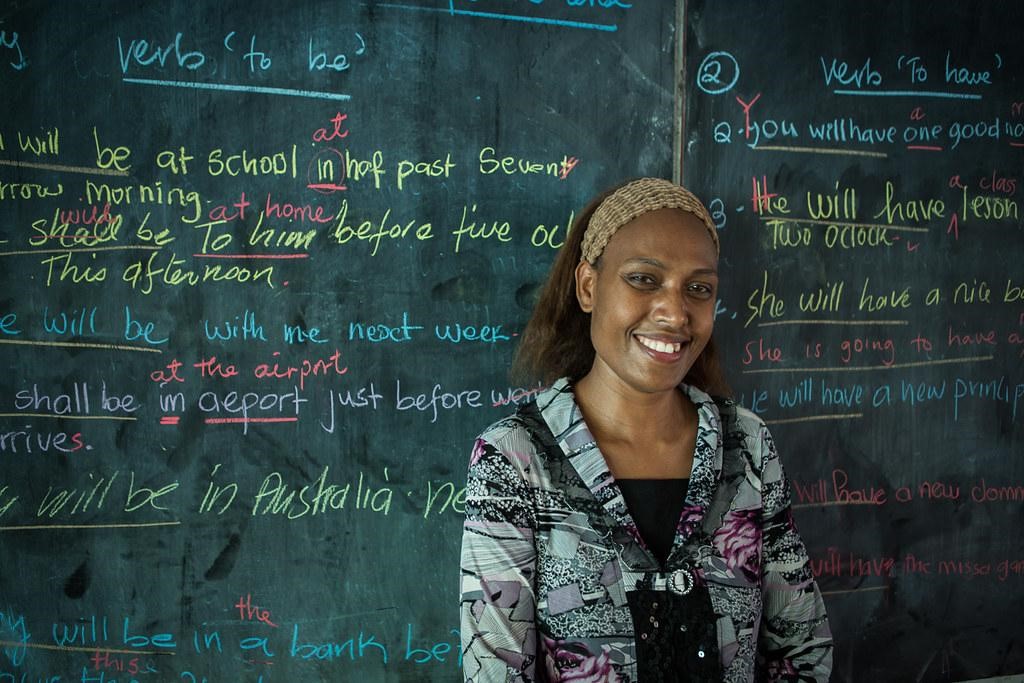 verb 'to be'
at
will be at school in haf past Seven
rrow morning.
will at home
shall be To him before five oc
This afternoon.
e will be with me next week.
at the airport
shall be in aeport just before went
rrives.
will be in Australia ne
the
will be in a bank be
this
② verb 'To have'
Y a
2. you will have one good no
a class
3. He will have leson
Two oclock.
she will have a nice b
She is going to have a
we will have a new princip
will have a new domm
will have the missd gam